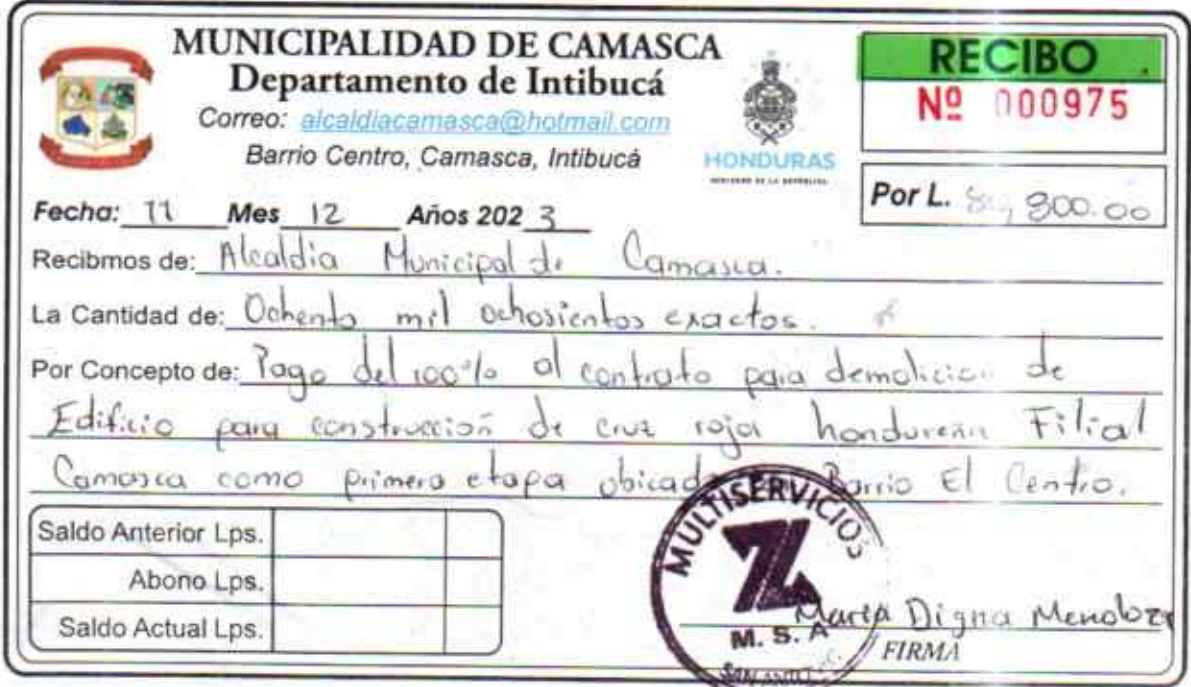 MUNICIPALIDAD DE CAMASCA
Departamento de Intibucá
Correo: alcaldiacamasca@hotmail.com
Barrio Centro, Camasca, Intibucá
HONDURAS
GOBIERNO DE LA REPÚBLICA
RECIBO
Nº 000975
Por L. 80,800.00
Fecha: 11 Mes 12 Años 2023
Recibmos de: Alcaldia Municipal de Camasca.
La Cantidad de: Ochenta mil ochosientos exactos.
Por Concepto de: Pago del 100% al contrato para demolicion de
Edificio para construcción de cruz roja hondureña Filial
Camasca como primera etapa obicado Barrio El Centro.
Saldo Anterior Lps.
Abono Lps.
Saldo Actual Lps.
MULTISERVICIOS
M. S. A
SAN
Maria Digna Mendoza
FIRMA